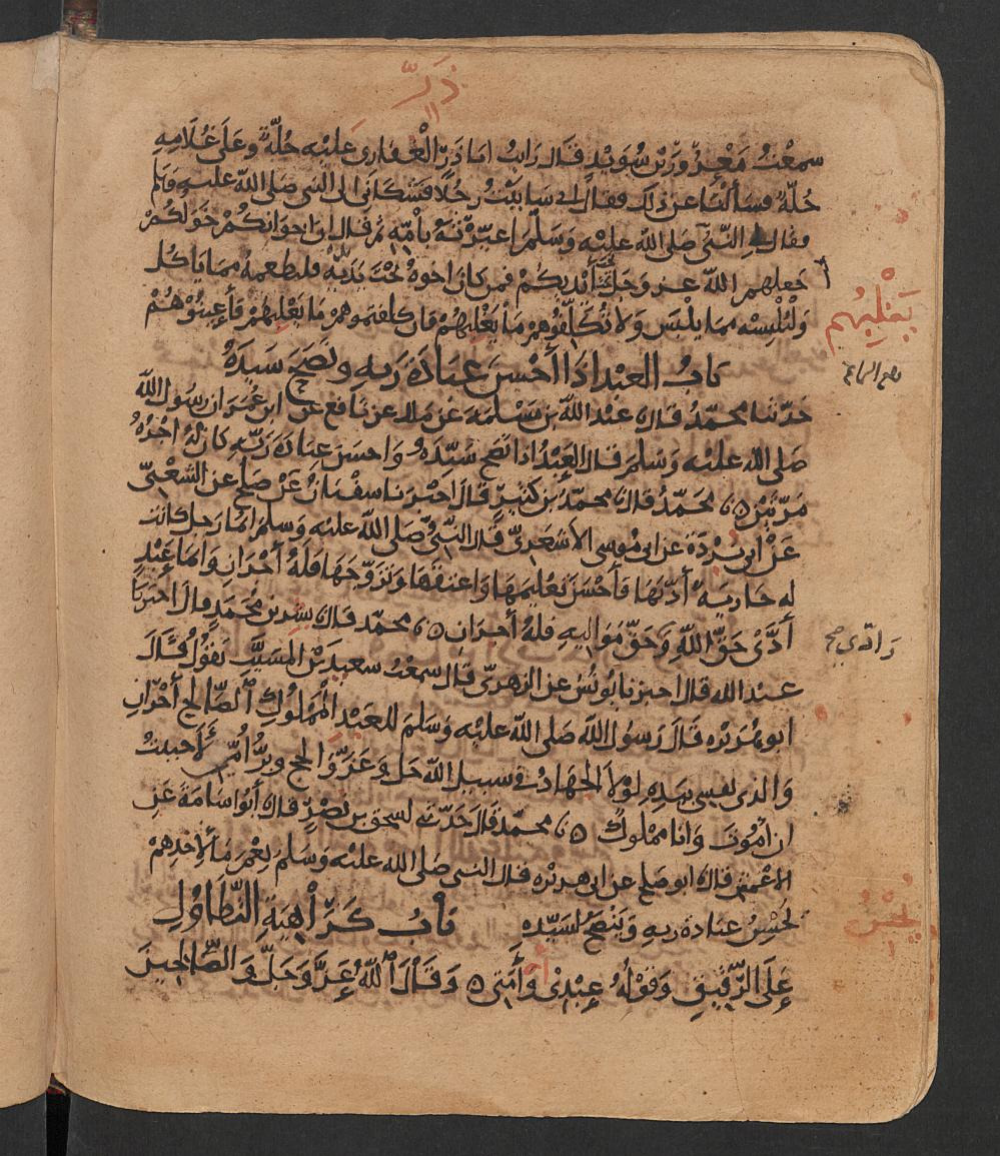 ذَرّ
سمعْتُ مَعْرُورَ بْن سُوَيْدٍ قَالَ رَايْتُ ابَا ذَرٍّ الْغفارى عَليْه حُلّةٌ وعَلَى غُلَامِهِ
حُلّةٌ فسَألْنَا عن ذلك فقالَ انى سَابَبْتُ رجُلًا فشَكَانى الى النبى صَلى اللّه عليه وسلم
فقال لى النّبىُّ صَلى اللّه عليْهِ وَسَلّم اعيّرْتَهُ بأمّه ثم قال ان اخوانكُمْ خَوَلُكُمْ
جعلهم اللّه عز وَجل تحت أيْديكُمْ فمن كانَ اخوهُ تحْتَ يَدَيْهِ فليطعمهُ مما يَاكل
وَلْيُلْبِسْه مما يلْبَس وَلا تُكَلّفُوهمْ مَا يَغْلِبهُمْ فان كلفتموهمْ مَا يَغْلِبهُمْ فَأعِينُوْهُمْ
يَغْلِبُهم
بَابُ العَبْد اذَا أحْسَنَ عبَادَةَ رَبهِ ونَصَحَ سَيدَهُ
حَدّثنا محمّدٌ قال عبْد اللّه بن مَسْلمَة عَن ملك عن نافع عن ابن عُمَر ان رسُول اللّه
صَلى اللّه عليْه وَسَلم قال العَبْدُ اذا نَصَحَ سَيّدَهُ وَاحسَنَ عِبَادَةَ رَبّهِ كانَ لهُ اجْرُهُ
مَرّتَيْن محَمّدٌ قال محمّدُ بن كثيرٍ قَالَ اخبَرَنا سفْيَانُ عَنْ صَلح عن الشعْبىّ
عَنْ ابى بُرْدَة عن ابى مُوسى الأشْعَرِىّ قَال النّبىُّ صَلى اللّه عليْه وَسَلم ايّما رَجل كانت
له جَاريَةٌ أدّبَهَا فَأحْسَنَ تعْليمَهَا وَاعتقهَا وَتَزَوّجَهَا فَلَهُ أجْرَانِ وَايّمَا عَبْدٍ
أدّى حَقّ اللّهِ وَحَقّ مَوَاليهِ فلهُ أجرَان محمّد قال بشر بن مُحَمّدٍ قالَ اخبَرَنَا
وَادّى صح
عبْد الله قال اخبرنا يُونُسُ عن الزهرىّ قال سمعْتُ سعيدَ بْنَ المُسَيّب يَقُولُ قَالَ
ابو هُرَيْرَه قَالَ رَسُولُ اللّه صَلى اللّه عليْه وَسَلم للعَبْد المَمْلُوكِ الصّالح أجْرَانِ
وَالذى نفسى بيَدِهِ لوْلا الجهَادُ فى سبيل اللّه عز وجل وَالحج وبِرُّ أُمّى لَأحببْتُ
ان أمُوتَ وَانا مملُوكٌ محمّد قال حَدّثَنى اسحق بن نَصْرٍ قال أبُو اسَامَةَ عَن
الاعْمش قال ابو صَلح عن ابى هريْره قال النبى صلى الله عليْه وَسَلم نِعْمَ مَا لأحَدِهمْ
يُحْسِنُ عبَادة رَبه وَيَنْصَحُ لسَيّده بَابُ كَرَاهِيَةِ التّطَاوُلِ
يُحْسِنُ
عَلَى الرّقِيقِ وَقَوْلُهُ عَبْدِى وَأَمَتِى وَقَالَ اللّهُ عَزّ وَجَلّ وَالصّالِحِينَ